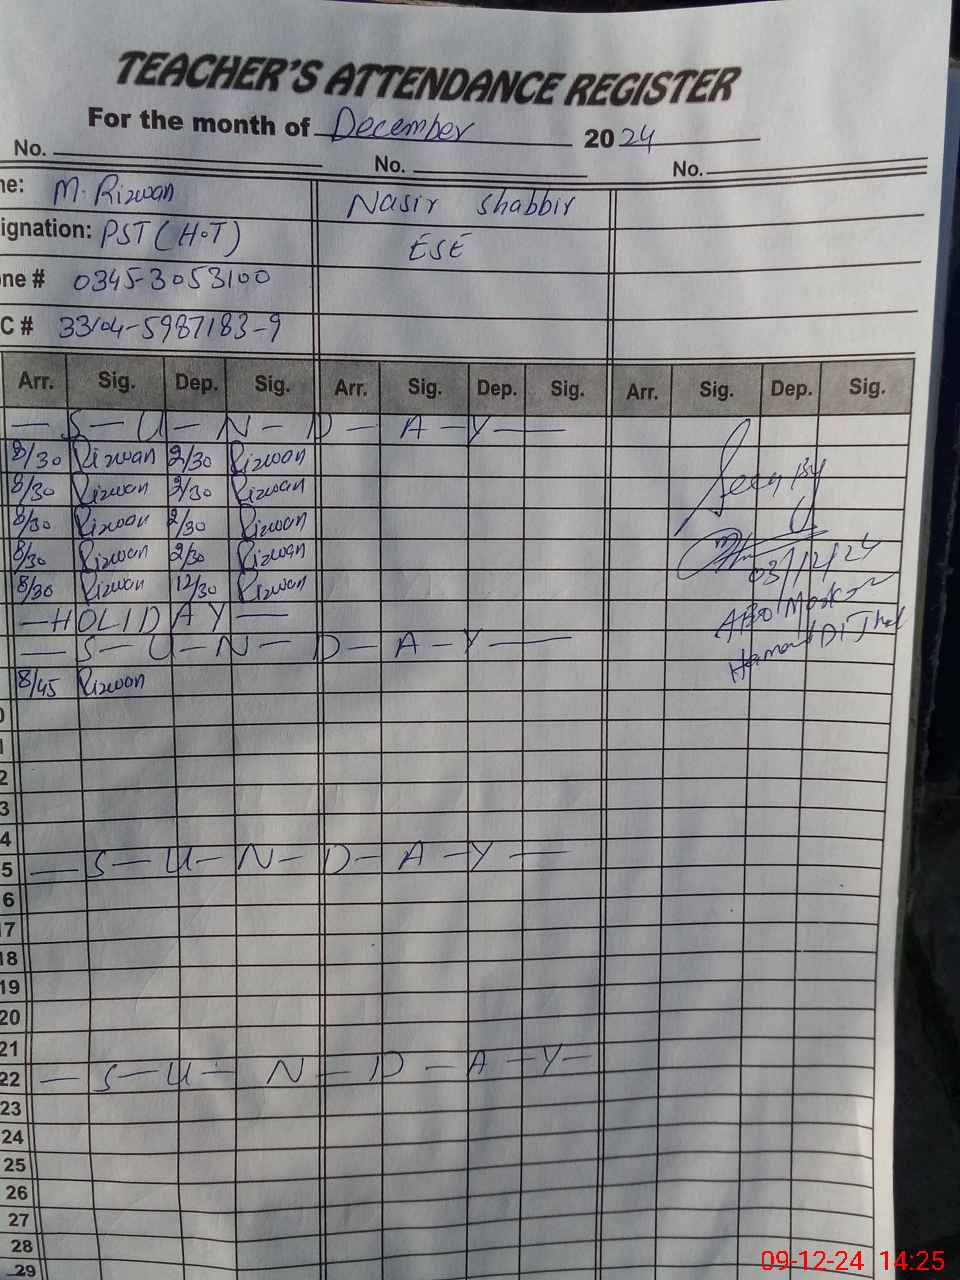 TEACHER'S ATTENDANCE REGISTER
For the month of December 2024
No. No. No.
ne: M. Rizwan Nasir Shabbir
ignation: PST (H.T) ESE
one # 0345-3053100
C #
Arr. Sig. Dep. Sig. Arr. Sig. Dep. Sig. Arr. Sig. Dep. Sig.
— S — U — N — D — A — Y —
8/30 Rizwan 2/30 Rizwan
8/30 Rizwan 2/30 Rizwan
8/30 Rizwan 2/30 Rizwan
8/30 Rizwan 2/30 Rizwan
8/30 Rizwan 12/30 Rizwan
— HOLIDAY —
— S — U — N — D — A — Y —
8/45 Rizwan
Seen By
03/12/24
0
1
2
3
4
5 — S — U — N — D — A — Y —
6
17
18
19
20
21
22 — S — U — N — D — A — Y —
23
24
25
26
27
28
29
09-12-24 14:25